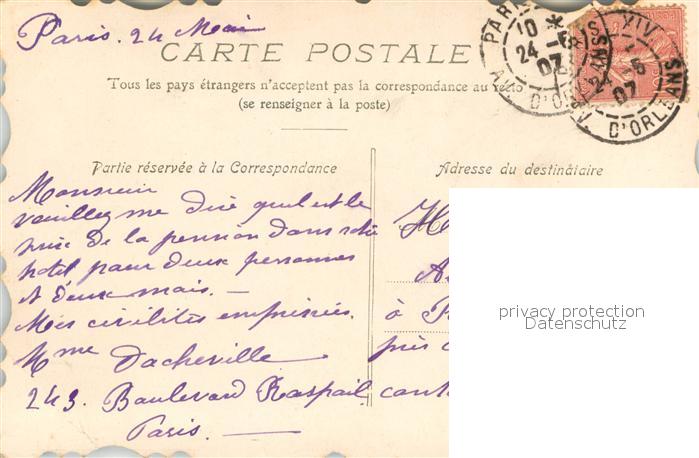 Paris. 24 Mai
CARTE POSTALE
Tous les pays étrangers n'acceptent pas la correspondance au recto
(se renseigner à la poste)
PARIS XIV
10 *
24 - 5
07
AV. D'ORLEANS
PARIS XIV
24 - 5
07
AV. D'ORLEANS
Partie réservée à la Correspondance
Monsieur
veuillez me dire quel est le
prix de la pension dans votre
hotel pour deux personnes
et deux mois. —
Mes civilités empressées.
Mme Dacheville
243. Boulevard Raspail
Paris. —
Adresse du destinataire
à
près
cant
privacy protection
Datenschutz